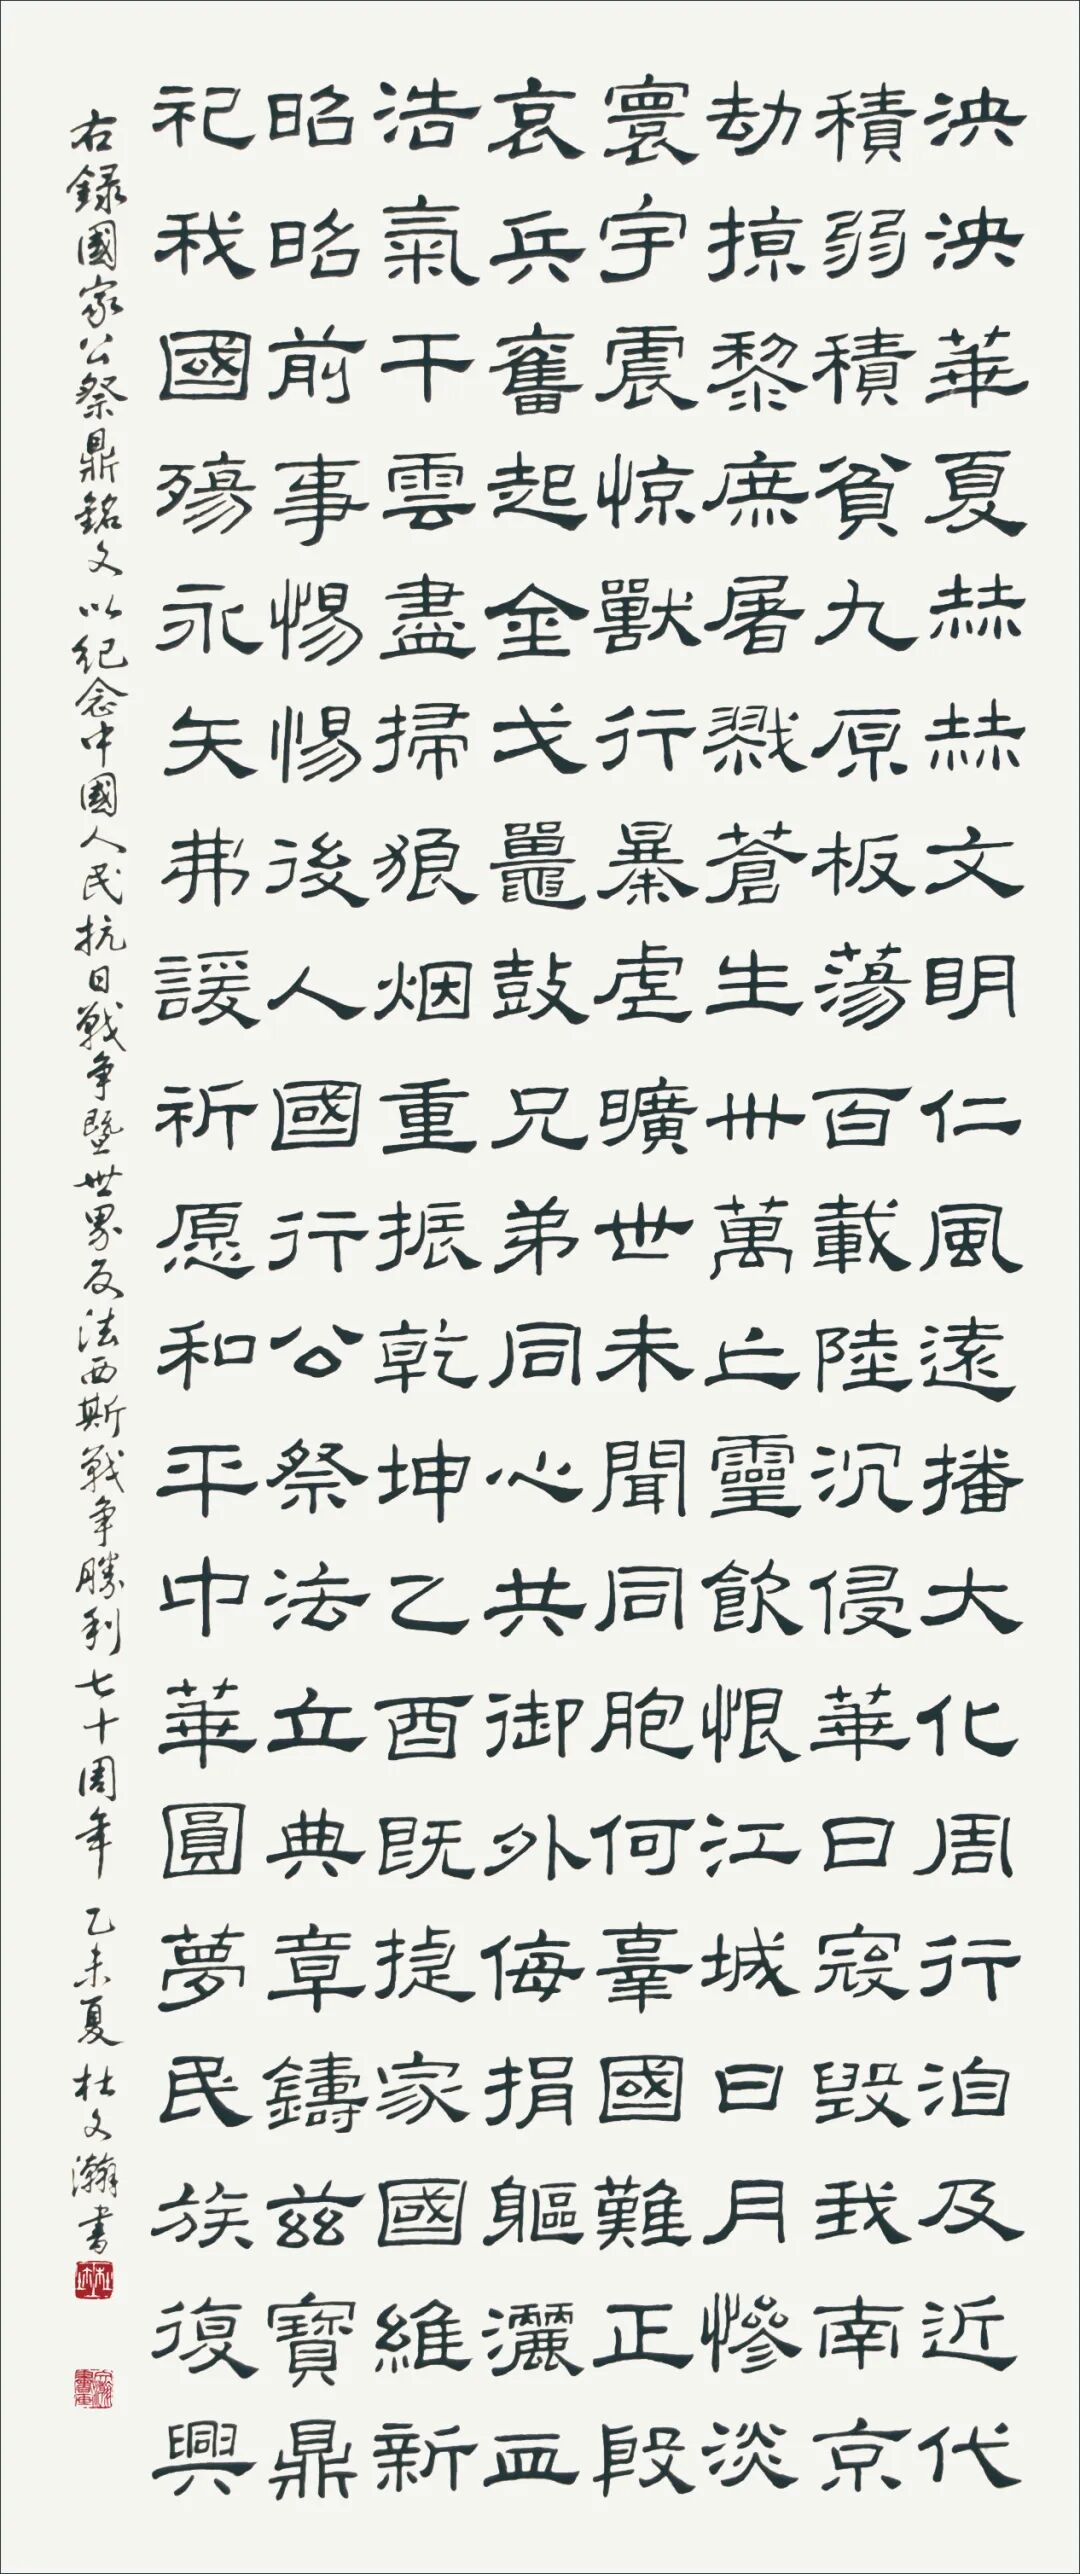 泱泱華夏赫赫文明仁風遠播大化周行洎及近代
積弱積貧九原板蕩百載陸沉侵華日寇毀我南京
劫掠黎庶屠戮蒼生卅萬亡靈飲恨江城日月慘淡
寰宇震惊獸行暴虐曠世未聞同胞何辜國難正殷
哀兵奮起金戈鼉鼓兄弟同心共御外侮捐軀灑血
浩氣干雲盡掃狼烟重振乾坤乙酉既捷家國維新
昭昭前事惕惕後人國行公祭法立典章鑄兹寶鼎
祀我國殤永矢弗諼祈愿和平中華圓夢民族復興
右録國家公祭鼎銘文以纪念中國人民抗日戰争暨世界反法西斯戰争勝利七十周年 乙未夏杜文瀚書